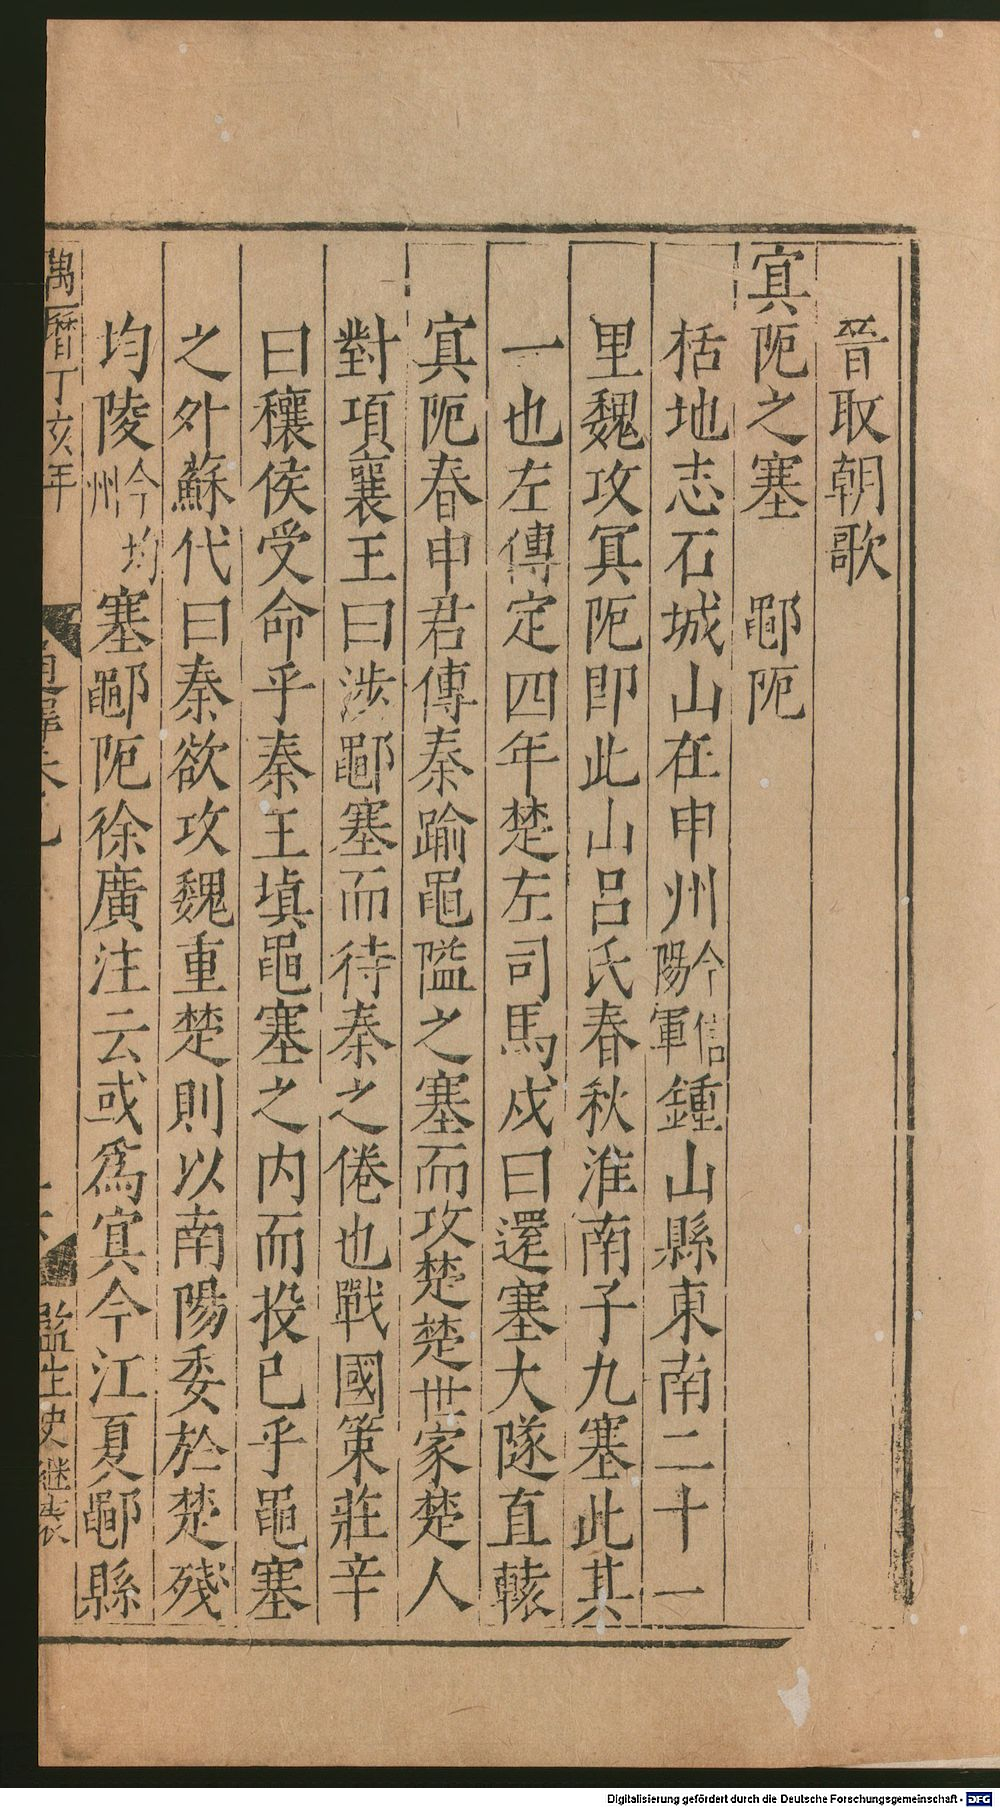 晉取朝歌
冥阨之塞　鄳阨
括地志石城山在申州今信陽軍鍾山縣東南二十一
里魏攻冥阨卽此山呂氏春秋淮南子九塞此其
一也左傳定四年楚左司馬戍曰還塞大隧直轅
冥阨春申君傳秦踰黽隘之塞而攻楚楚世家楚人
對項襄王曰涉鄳塞而待秦之倦也戰國策莊辛
曰穰侯受命乎秦王塡黽塞之内而投已乎黽塞
之外蘇代曰秦欲攻魏重楚則以南陽委於楚殘
均陵今均州塞鄳阨徐廣注云或爲冥今江夏鄳縣
萬曆丁亥年
監生史繼裘
Digitalisierung gefördert durch die Deutsche Forschungsgemeinschaft - DFG